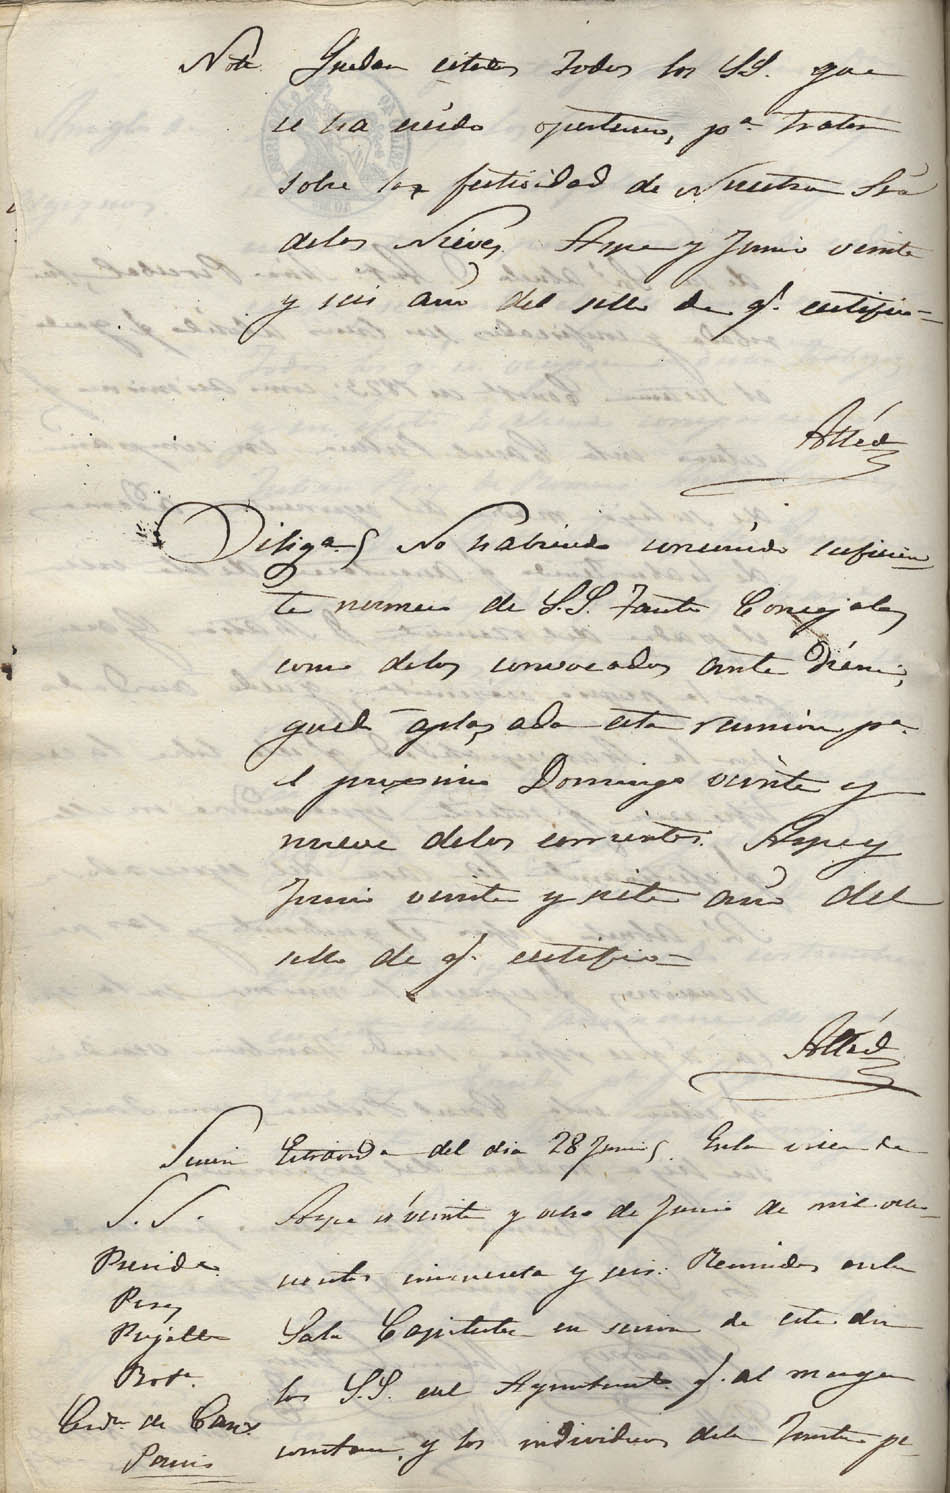 Nota. Quedan citados todos los SS. que
se ha creido oportuno, pª tratar
sobre la festividad de Nuestra Srâ
delas Nieves. Aspe y Junio veinte
y seis año del sello de q. certifico=
Diligª No habiendo concurrido suficien
te numero de S.S. tanto Concejales
como delos convocados ante Diem,
quedó aplazada esta reunion pª
el procsimo Domingo veinte y
nueve delos corrientes. Aspe y
Junio veinte y siete año del
sello de q. certifico=
Sesion Estraorda del dia 28 Junio. Enla villa de
S. S.
Aspe á veinte y ocho de Junio de mil ocho-
Preside.
cientos cincuenta y seis: Reunidos enla
Pujalte
Sala Capitular en sesion de este dia
Botª.
los S.S. del Ayuntamtº q. al margen
de
constan, y los individuos dela Junta pe